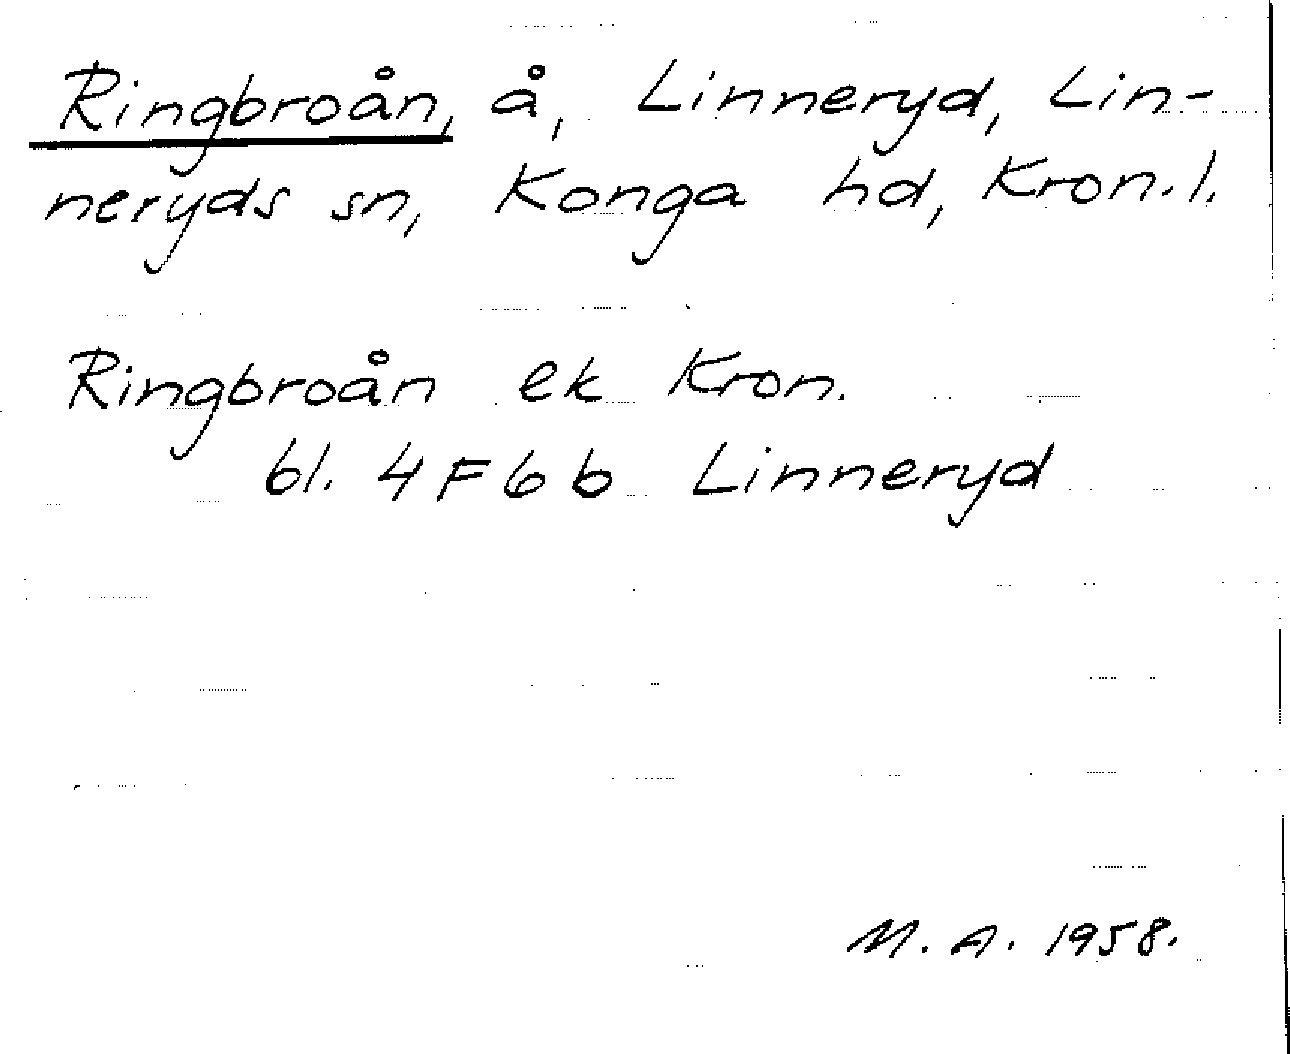 Ringbroån, å, Linneryd, Lin-
neryds sn, Konga hd, Kron.l.
Ringbroån ek Kron.
bl. 4F6b Linneryd
M. A. 1958.